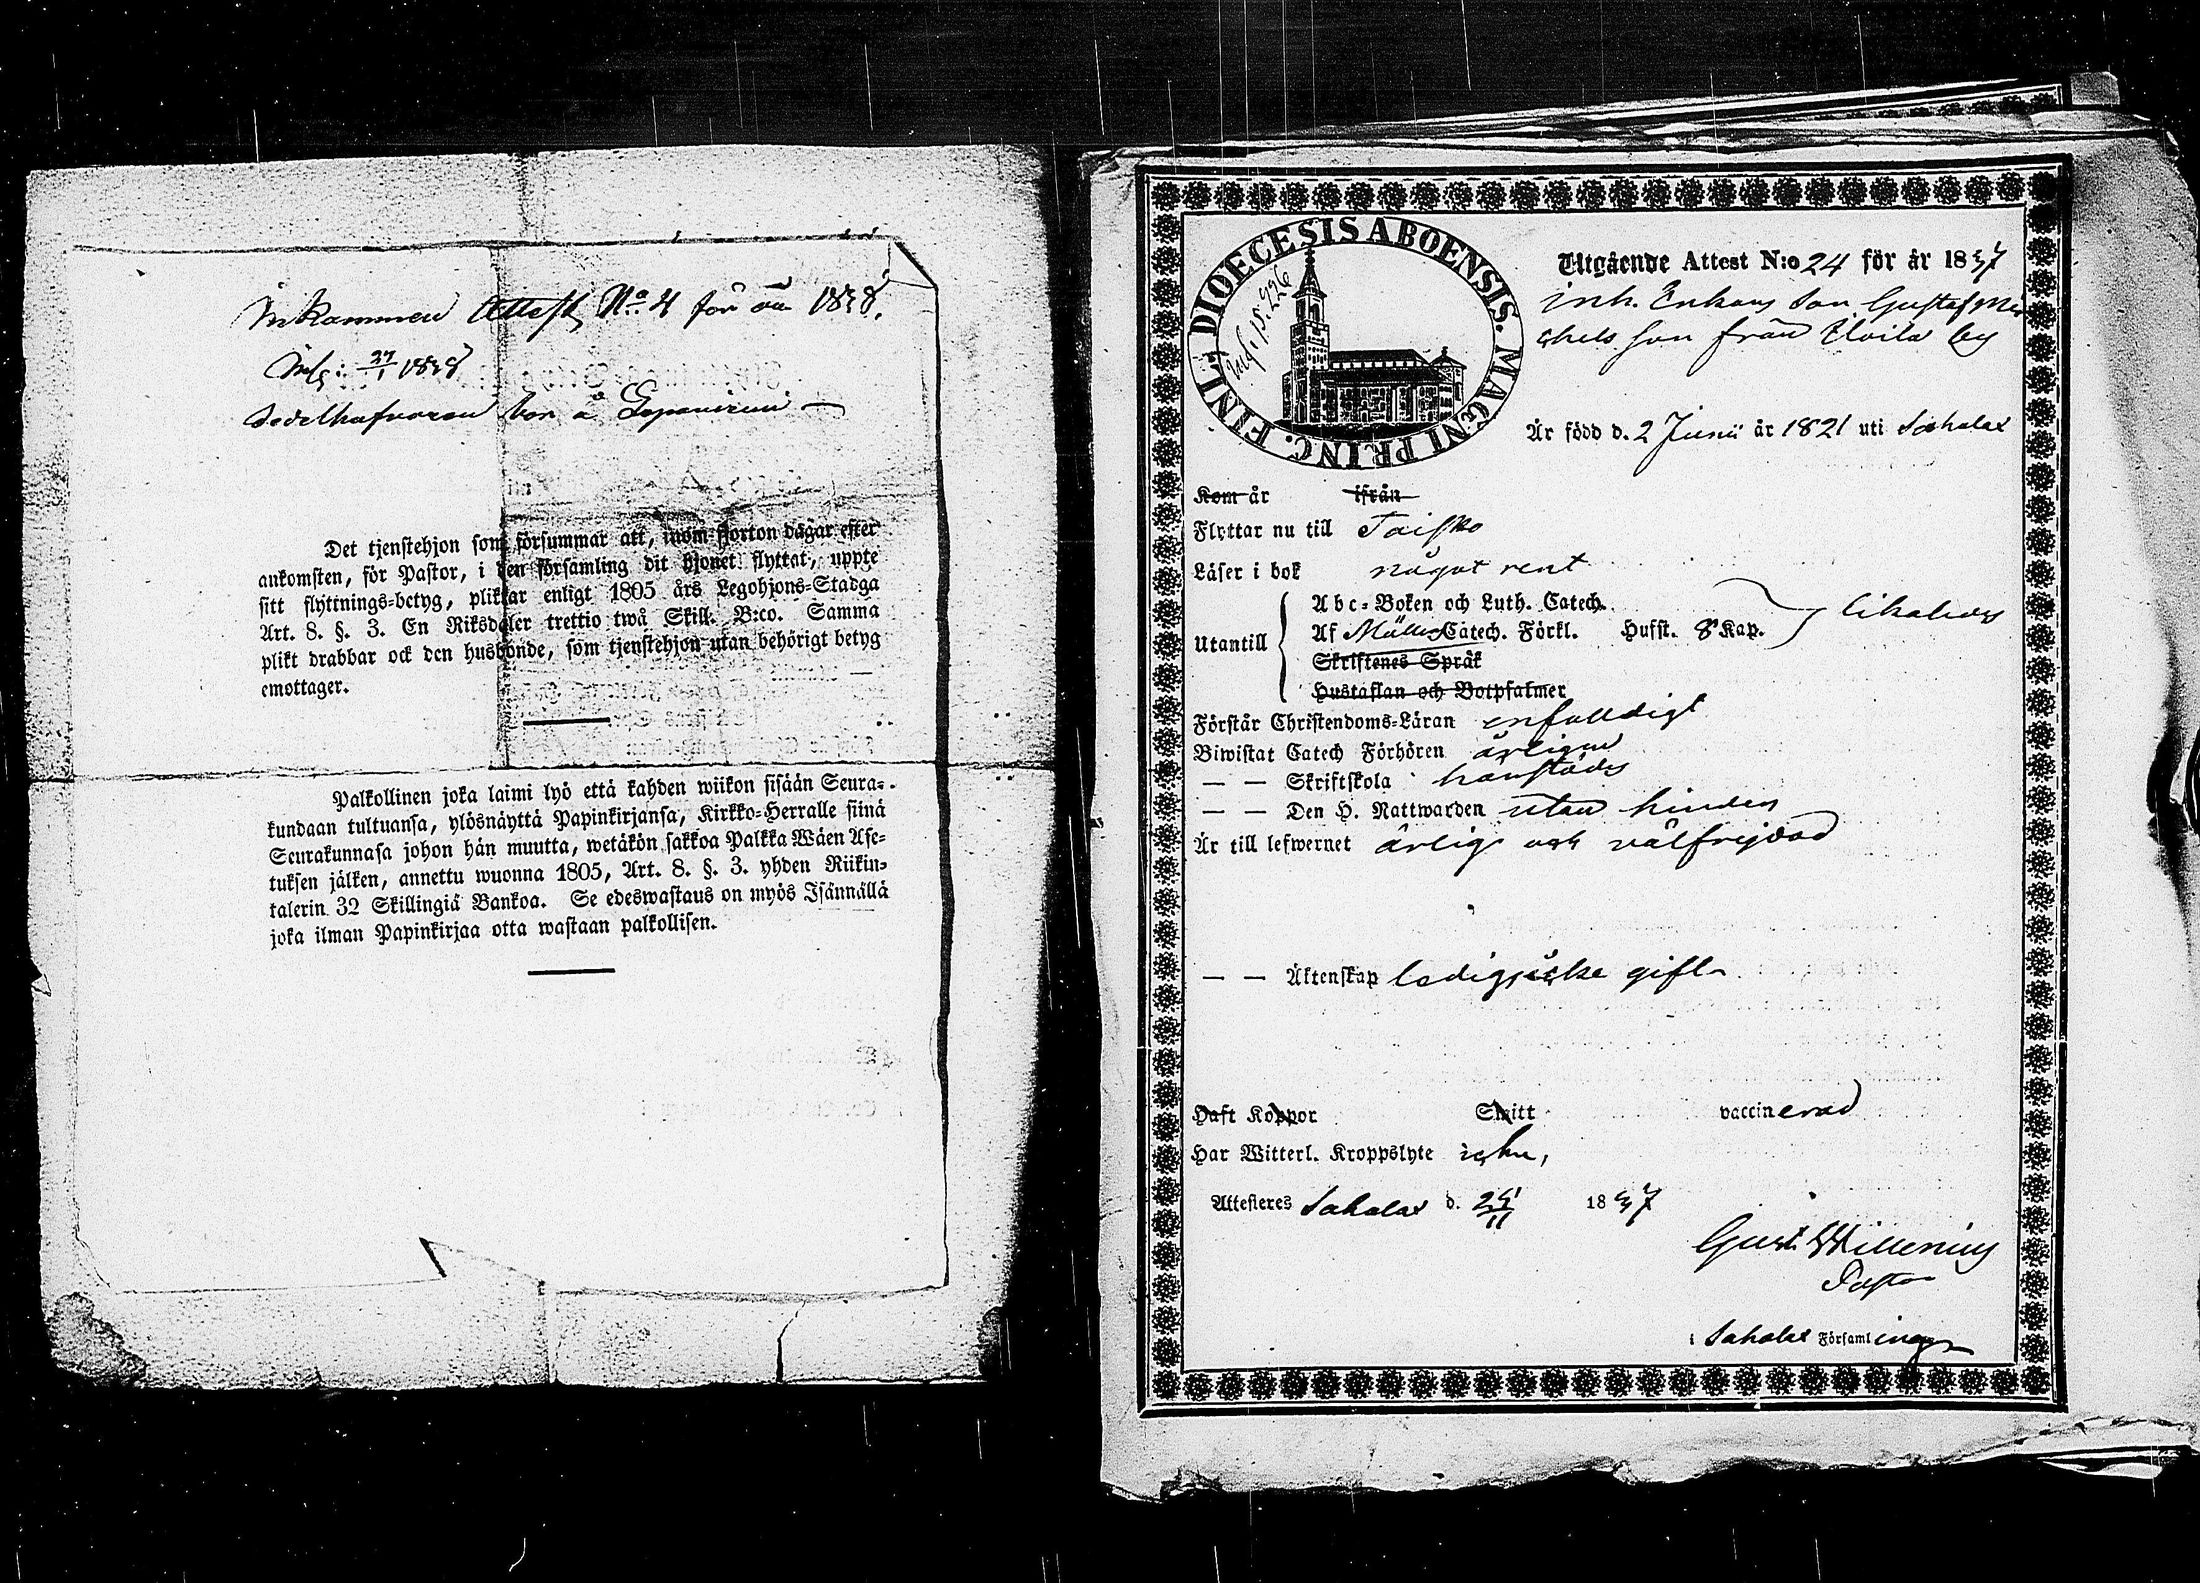 Inkommen Attest No 4 för år 1838.
Infs: 27/1 1838
Sedelhafvaren bor å
Det tjenstehjon som försummar att, inom fjorton dagar efter
ankomsten, för Pastor, i den församling dit hjonet flyttat, uppte
sitt flyttnings-betyg, pliktar enligt 1805 års Legohjons-Stadga
Art. 8. §. 3. En Riksdaler trettio twå Skill. B:co. Samma
plikt drabbar ock den husbonde, som tjenstehjon utan behörigt betyg
emottager.
Palkollinen joka laimi lyö että kahden wiikon sisään Seura-
kundaan tultuansa, ylösnäyttä Papinkirjansa, Kirkko-Herralle siinä
Seurakunnasa johon hän muutta, wetäkön sakkoa Palkka Wäen Ase-
tuksen jälken, annettu wuonna 1805, Art. 8. §. 3. yhden Riikin-
talerin 32 Skillingiä Bankoa. Se edeswastaus on myös Isännällä
joka ilman Papinkirjaa otta wastaan palkollisen.
DIOECESIS ABOENSIS. MAGNI PRINC. FINL;
Inf. p. 226
Utgående Attest N:o 24 för år 1837
inh. Enkans Son Gustaf Mi
chels son från Uoila by
Är född d. 2 Junii år 1821 uti Sahalax
Kom år ifrån
Flyttar nu till Taifko
Läser i bok något rent
Abc-Boken och Luth. Catech.
Utantill Af Möllers Catech. Förkl. Hufst. 8 Kap. likaledes
Skriftenes Språk
Hustaflan och Botpsalmer
Förstår Christendoms-Läran enfaldigt
Biwistat Catech Förhören årligen
— — Skriftskola härstädes
— — Den H. Nattwarden utan hinder
Är till lefwernet ärlig och välfrejdad
— — Äktenskap ledig, icke gift
Haft Koppor Smitt vaccinerad
Har Witterl. Kroppslyte icke,
Attesteras Sahalax d. 25/11 1837
Gust. Willenius
Pastor
i Sahalax Församlingen